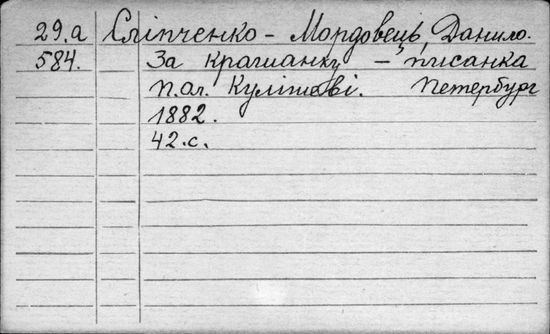 29.а Сліпченко - Мордовець, Данило.
584. За крашанку - писанка
П. Ол. Кулішеві. Петербург
1882.
42.с.